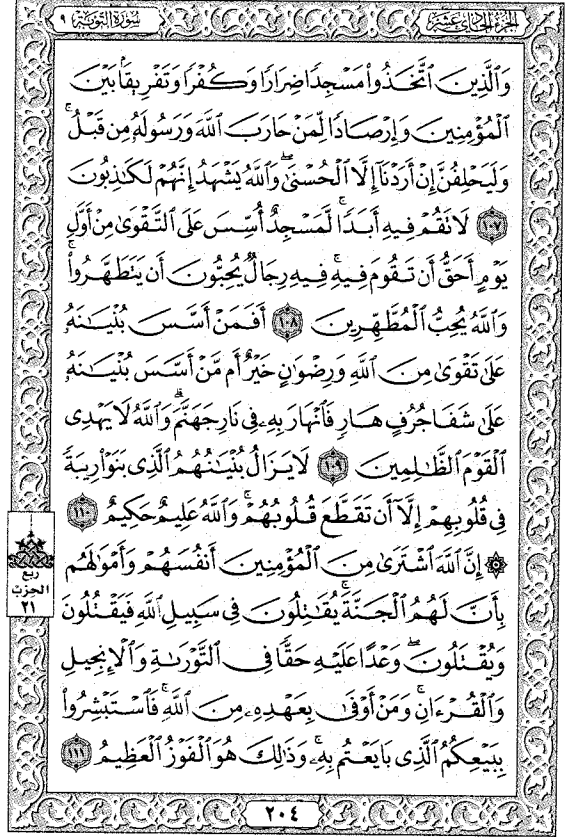 الجزء الحادي عشر
سورة التوبة ٩
وَٱلَّذِينَ ٱتَّخَذُوا۟ مَسْجِدًا ضِرَارًا وَكُفْرًا وَتَفْرِيقًۢا بَيْنَ
ٱلْمُؤْمِنِينَ وَإِرْصَادًا لِّمَنْ حَارَبَ ٱللَّهَ وَرَسُولَهُۥ مِن قَبْلُ ۚ
وَلَيَحْلِفُنَّ إِنْ أَرَدْنَآ إِلَّا ٱلْحُسْنَىٰ ۖ وَٱللَّهُ يَشْهَدُ إِنَّهُمْ لَكَـٰذِبُونَ
١٠٧ لَا تَقُمْ فِيهِ أَبَدًا ۚ لَّمَسْجِدٌ أُسِّسَ عَلَى ٱلتَّقْوَىٰ مِنْ أَوَّلِ
يَوْمٍ أَحَقُّ أَن تَقُومَ فِيهِ ۚ فِيهِ رِجَالٌ يُحِبُّونَ أَن يَتَطَهَّرُوا۟ ۚ
وَٱللَّهُ يُحِبُّ ٱلْمُطَّهِّرِينَ ١٠٨ أَفَمَنْ أَسَّسَ بُنْيَـٰنَهُۥ
عَلَىٰ تَقْوَىٰ مِنَ ٱللَّهِ وَرِضْوَٰنٍ خَيْرٌ أَم مَّنْ أَسَّسَ بُنْيَـٰنَهُۥ
عَلَىٰ شَفَا جُرُفٍ هَارٍ فَٱنْهَارَ بِهِۦ فِى نَارِ جَهَنَّمَ ۗ وَٱللَّهُ لَا يَهْدِى
ٱلْقَوْمَ ٱلظَّـٰلِمِينَ ١٠٩ لَا يَزَالُ بُنْيَـٰنُهُمُ ٱلَّذِى بَنَوْا۟ رِيبَةً
فِى قُلُوبِهِمْ إِلَّآ أَن تَقَطَّعَ قُلُوبُهُمْ ۗ وَٱللَّهُ عَلِيمٌ حَكِيمٌ ١١٠
۞ إِنَّ ٱللَّهَ ٱشْتَرَىٰ مِنَ ٱلْمُؤْمِنِينَ أَنفُسَهُمْ وَأَمْوَٰلَهُم
بِأَنَّ لَهُمُ ٱلْجَنَّةَ ۚ يُقَـٰتِلُونَ فِى سَبِيلِ ٱللَّهِ فَيَقْتُلُونَ
وَيُقْتَلُونَ ۖ وَعْدًا عَلَيْهِ حَقًّا فِى ٱلتَّوْرَىٰةِ وَٱلْإِنجِيلِ
وَٱلْقُرْءَانِ ۚ وَمَنْ أَوْفَىٰ بِعَهْدِهِۦ مِنَ ٱللَّهِ ۚ فَٱسْتَبْشِرُوا۟
بِبَيْعِكُمُ ٱلَّذِى بَايَعْتُم بِهِۦ ۚ وَذَٰلِكَ هُوَ ٱلْفَوْزُ ٱلْعَظِيمُ ١١١
ربع
الحزب
٢١
٢٠٤